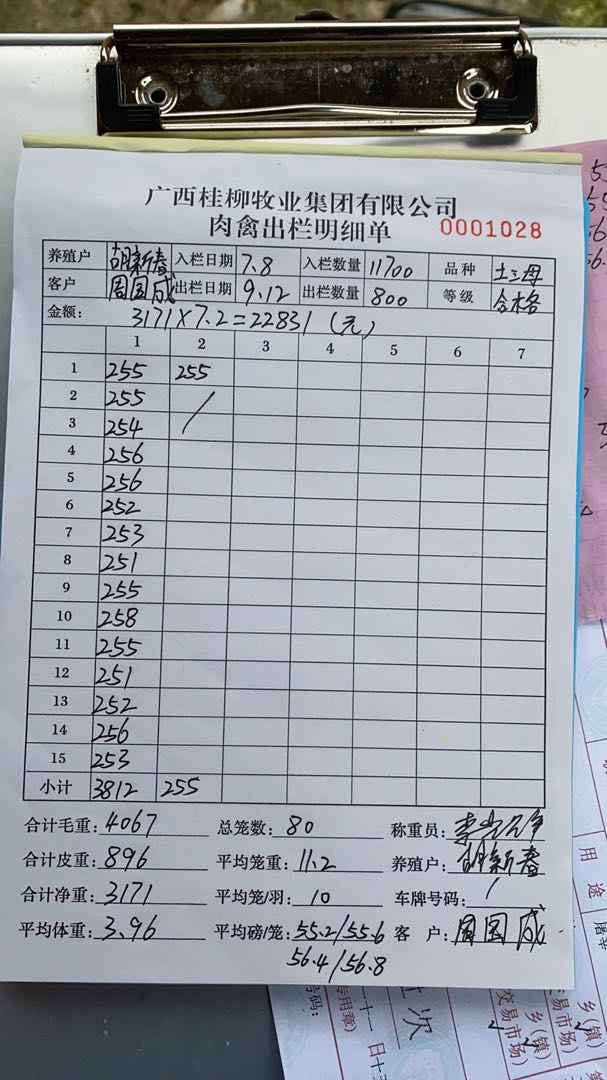 广西桂柳牧业集团有限公司
肉禽出栏明细单 0001028
养殖户 胡新春 入栏日期 7.8 入栏数量 11700 品种 土三母
客户 周国成 出栏日期 9.12 出栏数量 800 等级 合格
金额: 3171×7.2=22831(元)
1 2 3 4 5 6 7
1 255 255
2 255 /
3 254
4 256
5 256
6 252
7 253
8 251
9 255
10 258
11 255
12 251
13 252
14 256
15 253
小计 3812 255
合计毛重: 4067 总笼数: 80 称重员:
合计皮重: 896 平均笼重: 11.2 养殖户: 胡新春
合计净重: 3171 平均笼/羽: 10 车牌号码: /
平均体重: 3.96 平均磅/笼: 55.2/55.6 客户: 周国成
56.4/56.8
用途
乡(镇)
交易市场)